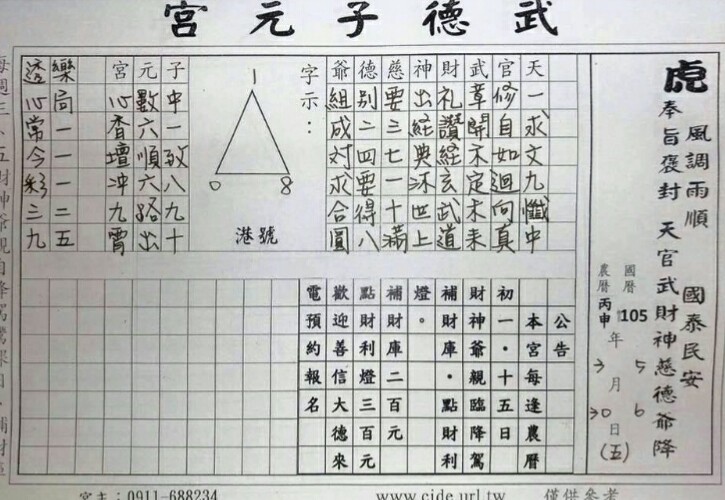 武德子元宮
虎 風調雨順 國泰民安
奉旨褒封 天官武財神慈德爺降
國曆 105 年 5 月 6 日 (五)
農曆 丙申 年 3 月 30 日
天一求文九懺中
官修自如迴向真
武草開不定未來
財礼讚経玄武道
神出経典沐世上
慈要三七一十滿
德別二四要得八
爺組成対求合圓
字示：
1
0 8
港號
子中一致八九十
元數六順六路出
宮心香壇沖九霄
樂局一一一二五
透心常今彩三九
公告
本宮每逢農曆
初一·十五日
財神爺親臨降駕
補財庫·點財利
燈。
補財庫二百元
點財利燈三百元
歡迎善信大德來
電預約報名
每週三、五財神爺親自降駕
宮主：0911-688234
www.cide.url.tw
僅供參考